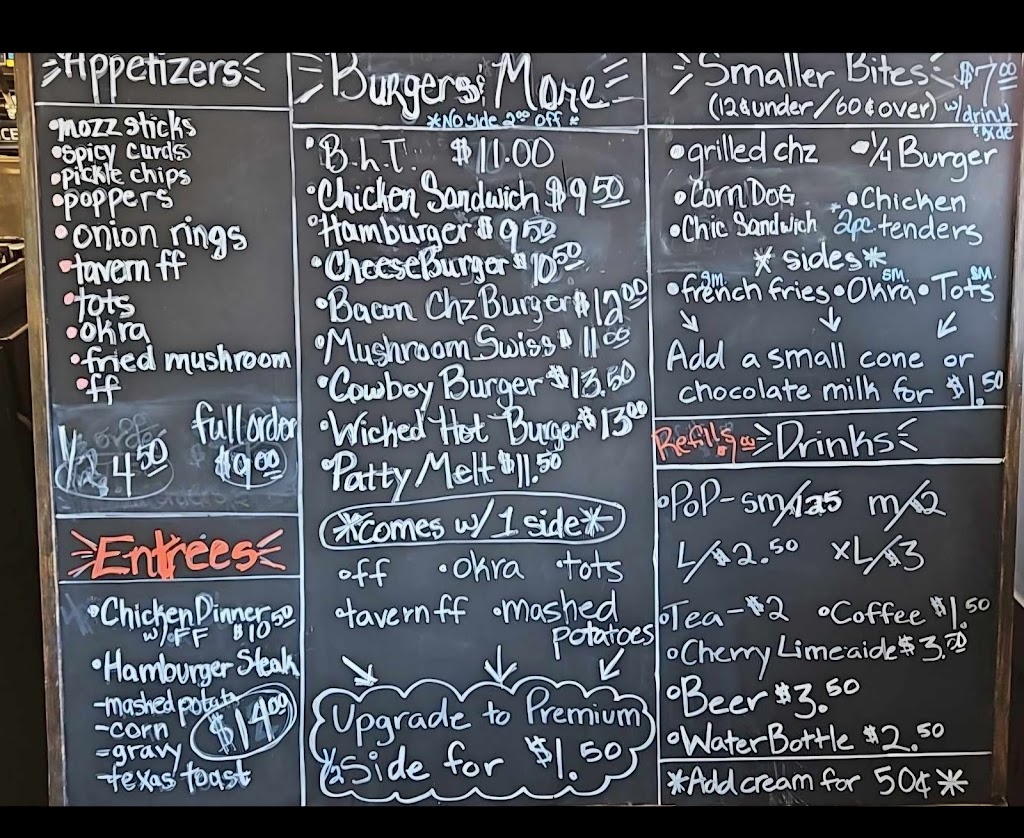 Appetizers
•mozz sticks
•spicy curds
•pickle chips
•poppers
•onion rings
•tavern ff
•tots
•okra
•fried mushroom
•ff
full order
1/2 4.50 $9.00
Entrees
•Chicken Dinner
w/FF $10.50
•Hamburger Steak
-mashed potato
-corn
-gravy
-texas toast
$14.00
Burgers & More
*No side 2.00 off*
•B.h.T. $11.00
•Chicken Sandwich $9.50
•Hamburger $9.50
•CheeseBurger $10.50
•Bacon Chz Burger $12.00
•Mushroom Swiss $11.00
•Cowboy Burger $13.50
•Wicked Hot Burger $13.00
•Patty Melt $11.50
*comes w/ 1 side*
•ff •okra •tots
•tavern ff •mashed
potatoes
Upgrade to Premium
1/2 side for $1.50
Smaller Bites $7.00
(12&under/60&over) w/drink
&side
•grilled chz •1/4 Burger
•Corn Dog •Chicken
•Chic Sandwich 2pc tenders
*sides*
sm. SM. SM.
•french fries •Okra •Tots
Add a small cone or
chocolate milk for $1.50
Refills Drinks
•PoP- sm/1.25 m/$2
L/$2.50 XL/$3
•Tea-$2 •Coffee $1.50
•Cherry Limeaide $3.50
•Beer $3.50
•Water Bottle $2.50
*Add cream for 50¢*